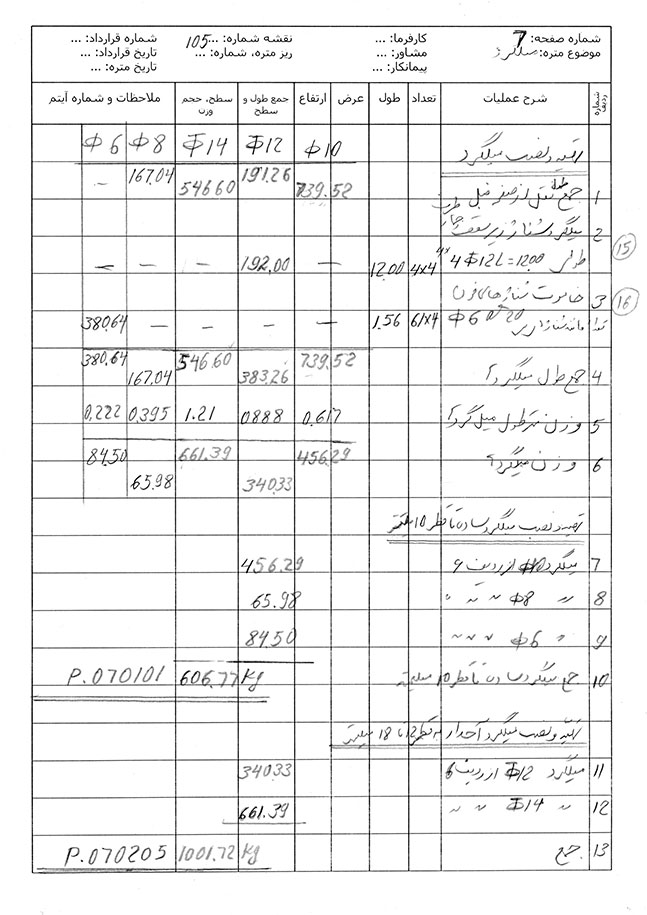 شماره صفحه: 7 کارفرما: ... نقشه شماره: ...105 شماره قرارداد: ...
موضوع متره: میلگرد مشاور: ... ریز متره، شماره: ... تاریخ قرارداد: ...
پیمانکار: ... تاریخ متره: ...
شماره ردیف شرح عملیات تعداد طول عرض ارتفاع جمع طول و سطح سطح، حجم وزن ملاحظات و شماره آیتم
تهیه و نصب میلگرد Φ10 Φ12 Φ14 Φ8 Φ6
1 جمع طول نقل از صفحه قبل 739.52 191.26 546.60 167.04 —
2 میلگرد شناژ زیر سقف
15
طولی 4Φ12L=12.00 4×4 12.00 — 192.00 — — —
3 خاموت شناژهای فوق
16
Φ6 @ 20 61×4 1.56 — — — — 380.64
4 جمع طول میلگردها 739.52 383.26 546.60 167.04 380.64
5 وزن متر طول میلگردها 0.617 0.888 1.21 0.395 0.222
6 وزن میلگردها 456.29 340.33 661.39 65.98 84.50
تهیه و نصب میلگرد ساده تا قطر 10 میلیمتر
7 میلگرد Φ10 از ردیف 6 456.29
8 〃 Φ8 〃 〃 〃 65.98
9 〃 Φ6 〃 〃 〃 84.50
10 جمع میلگرد ساده تا قطر 10 میلیمتر 606.77 kg P.070101
تهیه و نصب میلگرد آجدار به قطر 12 تا 18 میلیمتر
11 میلگرد Φ12 از ردیف 6 340.33
12 〃 Φ14 〃 〃 661.39
13 جمع 1001.72 kg P.070205